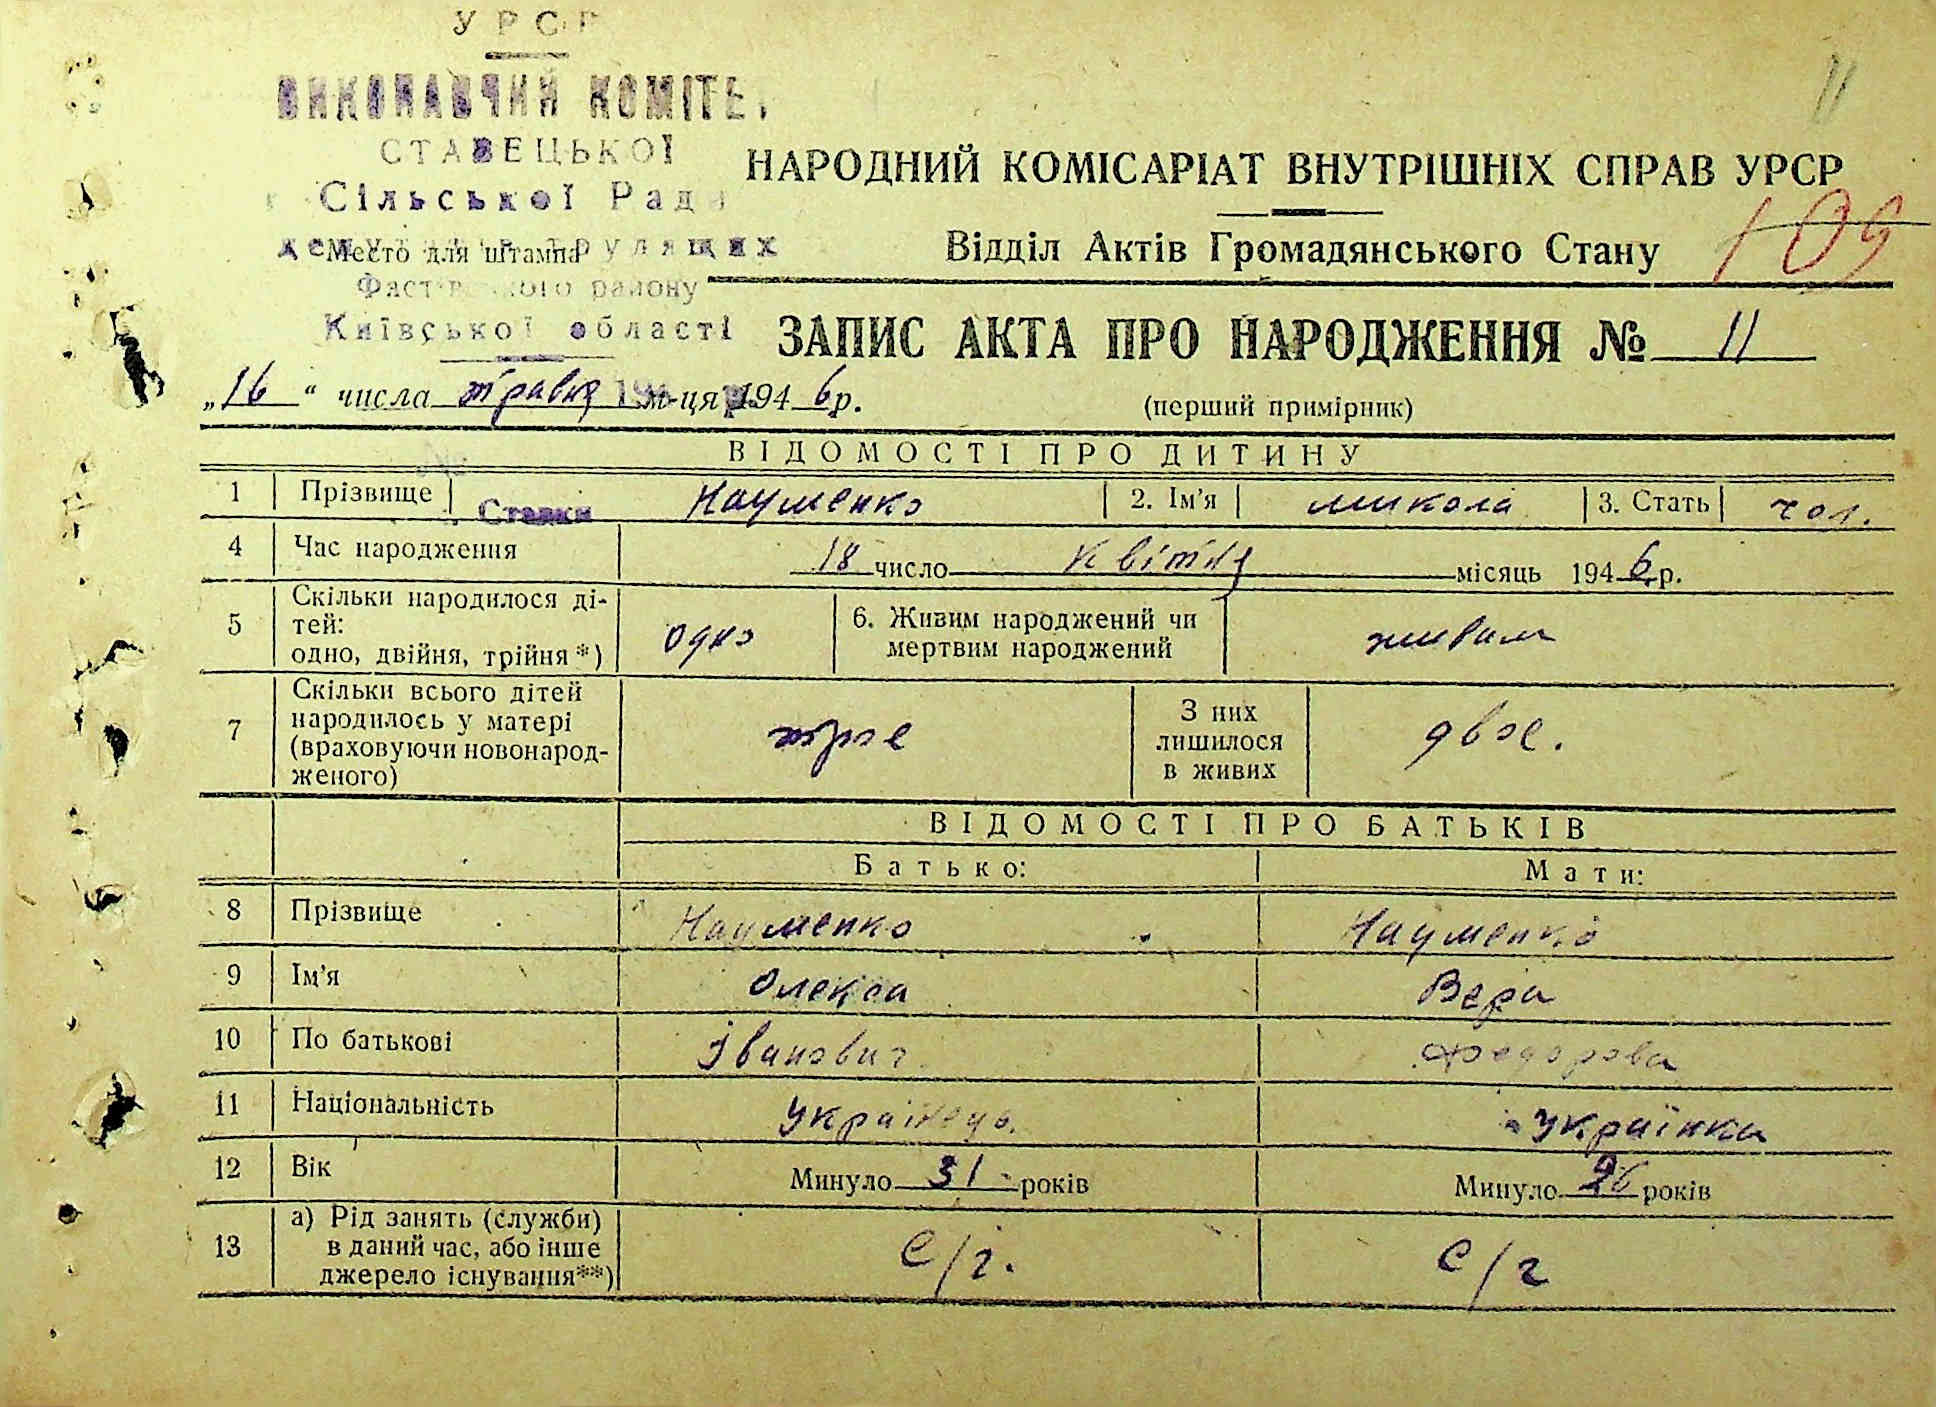 УРСР
ВИКОНАВЧИЙ КОМІТЕ
СТАВЕЦЬКОЇ
Сільської Ради
трудящих
Место для штампа
Фастівського району
Київської області
11
НАРОДНИЙ КОМІСАРІАТ ВНУТРІШНІХ СПРАВ УРСР
Відділ Актів Громадянського Стану
109
ЗАПИС АКТА ПРО НАРОДЖЕННЯ № 11
„16" числа травня м-ця 1946 р.
(перший примірник)
ВІДОМОСТІ ПРО ДИТИНУ
1 Прізвище Ставки Науменко 2. Ім'я Микола 3. Стать чол.
4 Час народження 18 число Квітня місяць 1946 р.
5 Скільки народилося ді-
тей:
одно, двійня, трійня*) одно
6. Живим народжений чи
мертвим народжений живим
7 Скільки всього дітей
народилось у матері
(враховуючи новонарод-
женого) троє
З них
лишилося
в живих двоє.
ВІДОМОСТІ ПРО БАТЬКІВ
Батько: Мати:
8 Прізвище Науменко Науменко
9 Ім'я Олекса Вера
10 По батькові Іванович Федорова
11 Національність Українець. Українка
12 Вік Минуло 31 років Минуло 26 років
13 а) Рід занять (служби)
в даний час, або інше
джерело існування**) с/г. с/г